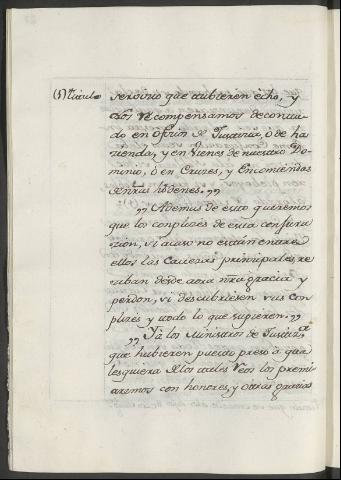 (5) Titulo
servicio que hubieren echo, y
Los recompensamos decontado
do en Oficios de Justicia, ò de ha
zienda, y en Vienes de nuestro Do
minio, ò en Cruzes, y Encomiendas
de nras hórdenes. „
„ Ademas de esto queremos
que los conplizes de esta conjura
zion, si acaso no están entre
ellos las Cavezas principales, re
ciban desde aora nra gracia y
perdon, si descubriesen sus con
plizes y todo lo que supieren. „
„ Ya los Ministros de Justiza
que hubieren puesto preso á qua
lesquiera de los tales Reos los premi
aremos con honores, y otras gracias